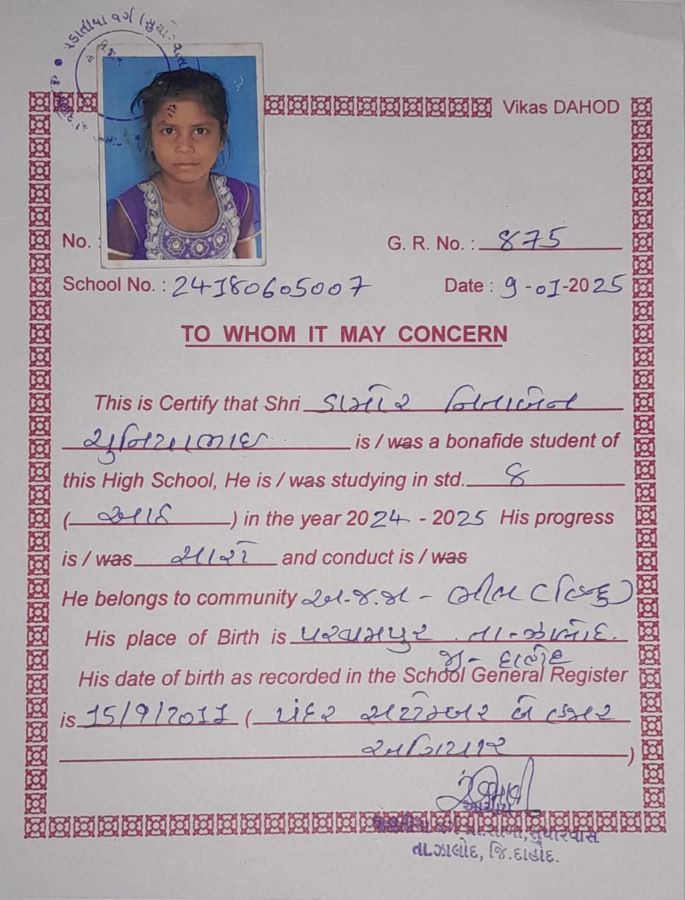 Vikas DAHOD
No. :
G. R. No. : 875
School No. : 24180605007
Date : 9-01-2025
TO WHOM IT MAY CONCERN
This is Certify that Shri ડામોર નિતાબેન
is / was a bonafide student of
this High School, He is / was studying in std. 8
( આઠ ) in the year 2024 - 2025 His progress
is / was સારો and conduct is / was
He belongs to community અ.જ.જા - ભીલ (હિન્દુ)
His place of Birth is તા-ઝાલોદ.
જી - દાહોદ
His date of birth as recorded in the School General Register
is 15/9/2011 ( પંદર સપ્ટેમ્બર બે હજાર
અગિયાર )
આચાર્ય
તા.ઝાલોદ, જિ.દાહોદ.